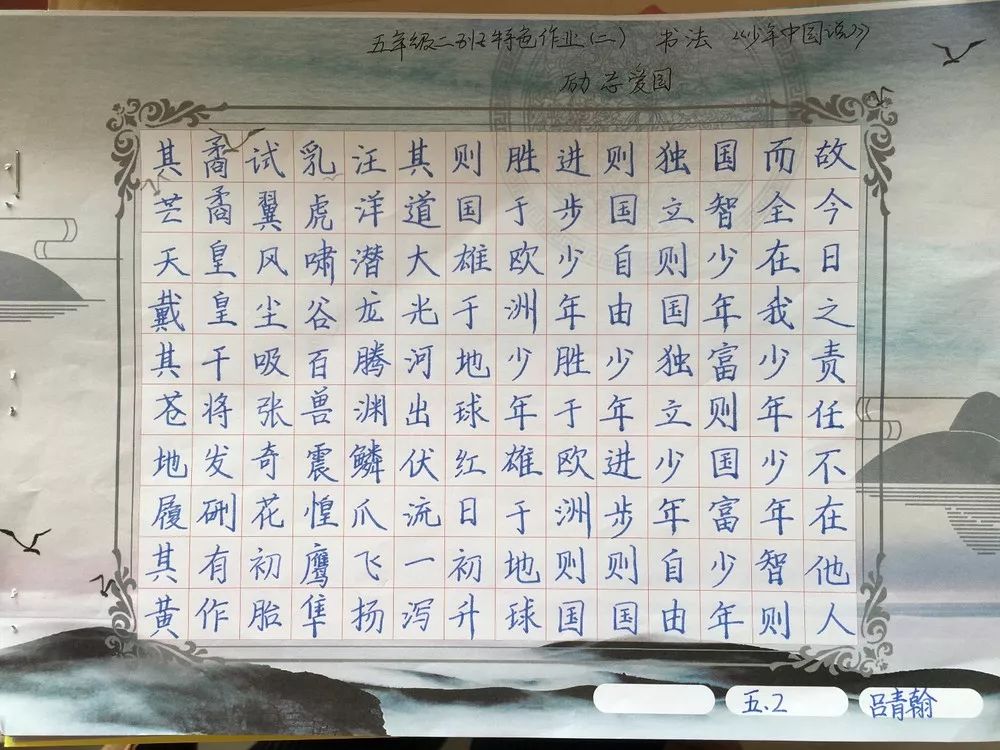 五年级二班特色作业(二) 书法《少年中国说》
励志爱国
故今日之责任不在他人
而全在我少年少年智则
国智少年富则国富少年
独立则国独立少年自由
则国自由少年进步则国
进步少年胜于欧洲则国
胜于欧洲少年雄于地球
则国雄于地球红日初升
其道大光河出伏流一泻
汪洋潜龙腾渊鳞爪飞扬
乳虎啸谷百兽震惶鹰隼
试翼风尘吸张奇花初胎
矞矞皇皇干将发硎有作
其芒天戴其苍地履其黄
五.2
吕青翰